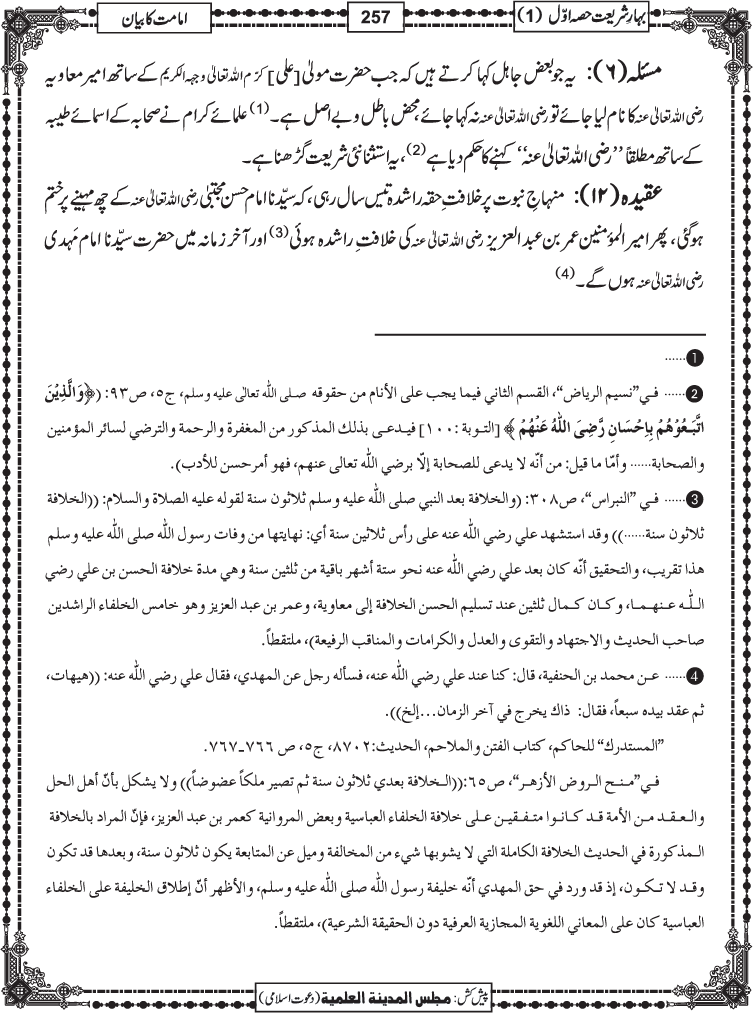 بہار شریعت حصہ اوّل (1)
257
امامت کا بیان
مسئلہ (۶): یہ جو بعض جاہل کہا کرتے ہیں کہ جب حضرت مولیٰ [علی] کرّم اللہ تعالیٰ وجہہ الکریم کے ساتھ امیر معاویہ
رضی اللہ تعالیٰ عنہ کا نام لیا جائے تو رضی اللہ تعالیٰ عنہ نہ کہا جائے، محض باطل و بے اصل ہے۔(1) علمائے کرام نے صحابہ کے اسمائے طیبہ
کے ساتھ مطلقاً ’’رضی اللہ تعالیٰ عنہ‘‘ کہنے کا حکم دیا ہے (2)، یہ استثنا نئی شریعت گڑھنا ہے۔
عقیدہ (۱۲): منہاجِ نبوت پر خلافتِ حقہ راشدہ تیس سال رہی، کہ سیّدنا امام حسن مجتبیٰ رضی اللہ تعالیٰ عنہ کے چھ مہینے پر ختم
ہوگئی، پھر امیر المؤمنین عمر بن عبد العزیز رضی اللہ تعالیٰ عنہ کی خلافتِ راشدہ ہوئی (3) اور آخر زمانہ میں حضرت سیّدنا امام مَہدی
رضی اللہ تعالیٰ عنہ ہوں گے۔(4)
1......
2...... في ”نسيم الرياض“، القسم الثاني فيما يجب على الأنام من حقوقه صلى الله تعالى عليه وسلم، ج٥، ص٩٣: (﴿وَالَّذِيْنَ
اتَّبَعُوْهُمْ بِاِحْسَانٍ رَّضِيَ اللّٰهُ عَنْهُمْ﴾ [التوبة: ١٠٠] فيدعى بذلك المذكور من المغفرة والرحمة والترضي لسائر المؤمنين
والصحابة...... وأمّا ما قيل: من أنّه لا يدعى للصحابة إلّا برضي الله تعالى عنهم، فهو أمر حسن للأدب).
3...... في ”النبراس“، ص٣٠٨: (والخلافة بعد النبي صلى الله عليه وسلم ثلاثون سنة لقوله عليه الصلاة والسلام: ((الخلافة
ثلاثون سنة......)) وقد استشهد علي رضي الله عنه على رأس ثلاثين سنة أي: نهايتها من وفات رسول الله صلى الله عليه وسلم
هذا تقريب، والتحقيق أنّه كان بعد علي رضي الله عنه نحو ستة أشهر باقية من ثلثين سنة وهي مدة خلافة الحسن بن علي رضي
الله عنهما، وكان كمال ثلثين عند تسليم الحسن الخلافة إلى معاوية، وعمر بن عبد العزيز وهو خامس الخلفاء الراشدين
صاحب الحديث والاجتهاد والتقوى والعدل والكرامات والمناقب الرفيعة)، ملتقطاً.
4...... عن محمد بن الحنفية، قال: كنا عند علي رضي الله عنه، فسأله رجل عن المهدي، فقال علي رضي الله عنه: ((هيهات،
ثم عقد بيده سبعاً، فقال: ذاك يخرج في آخر الزمان...إلخ)).
”المستدرك“ للحاكم، كتاب الفتن والملاحم، الحديث: ٨٧٠٢، ج٥، ص ٧٦٦-٧٦٧.
في ”منح الروض الأزهر“، ص٦٥: ((الخلافة بعدي ثلاثون سنة ثم تصير ملكاً عضوضاً)) ولا يشكل بأنّ أهل الحل
والعقد من الأمة قد كانوا متفقين على خلافة الخلفاء العباسية وبعض المروانية كعمر بن عبد العزيز، فإنّ المراد بالخلافة
المذكورة في الحديث الخلافة الكاملة التي لا يشوبها شيء من المخالفة وميل عن المتابعة يكون ثلاثون سنة، وبعدها قد تكون
وقد لا تكون، إذ قد ورد في حق المهدي أنّه خليفة رسول الله صلى الله عليه وسلم، والأظهر أنّ إطلاق الخليفة على الخلفاء
العباسية كان على المعاني اللغوية المجازية العرفية دون الحقيقة الشرعية)، ملتقطاً.
پیش کش: مجلس المدينة العلمية (دعوت اسلامی)